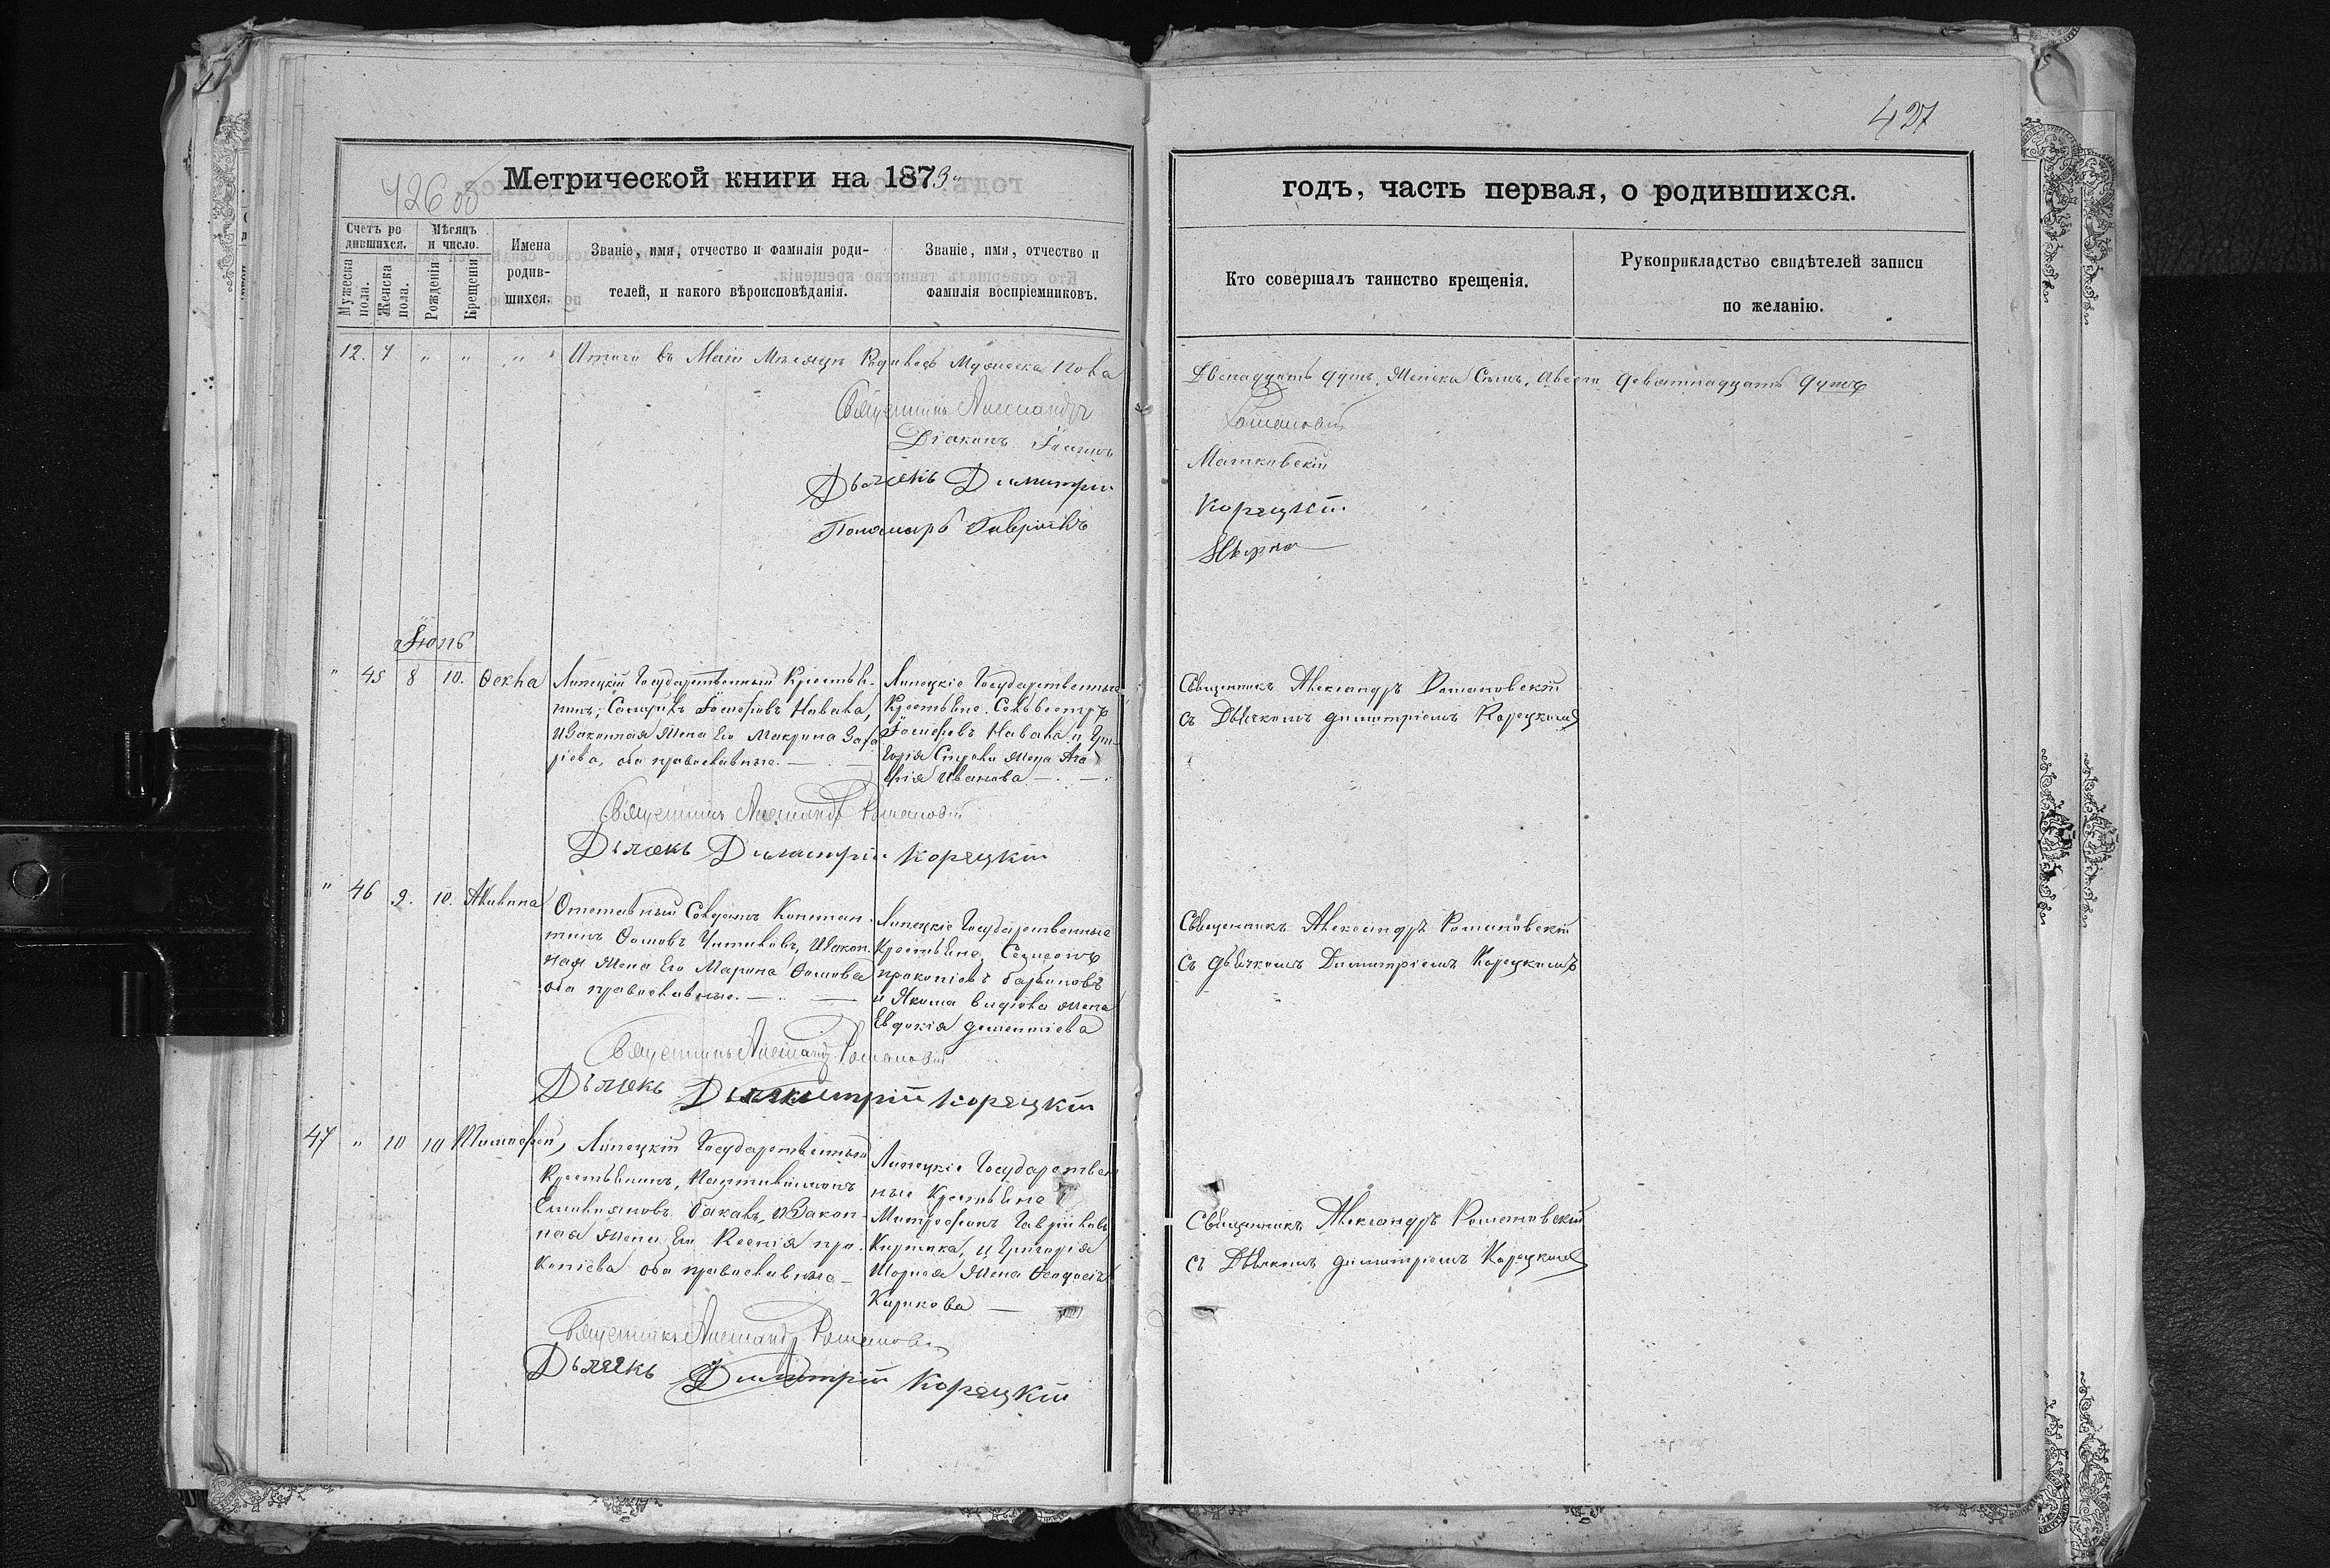 427
426 об
Метрической книги на 1873.
годъ, часть первая, о родившихся.
Счетъ ро
дившихся.
Мужеска
пола.
Женска
пола.
Мѣсяцъ
и число.
Рожденія
Крещенія
Имена
родив-
шихся.
Званіе, имя, отчество и фамилія роди-
телей, и какого вѣроисповѣданія.
Званіе, имя, отчество и
фамилія воспріемниковъ.
Кто совершалъ таинство крещенія.
Рукоприкладство свидѣтелей записи
по желанію.
12. 7 " " " Итого въ Маіи Мѣсяцѣ Родилось Мужеска Пола
Двенадцать душъ, Женска Семь, Авсего девятнадцать душъ
Священникъ Александръ
Романовскій
Діаконъ
Матковскій
Дьячекъ Димитрій
Корецкій
Пономарь Гавріилъ
Іюнь
" 45 8 10. Өекла
Липецкій Государственный Крестья-
нинъ, Іосифовъ
изаконная Жена Его Макрина Заха
ріева, оба православные.
Липецкіе Государственные
Крестьяне. Сильвестръ
Іосифовъ и Гри-
горія жена Ага
Иванова
Священникъ Александръ Романовскій
съ Дьячкомъ димитріемъ Корецкимъ
Священникъ Александръ Романовскій
Дьячекъ Димитрій Корецкій
" 46 9. 10. Акилина
Отставный Солдатъ Констан-
тинъ Өомовъ Изакон-
ная Жена Его Марина Өомова
оба православные.
Липецкіе Государственные
Крестьяне, Семеонъ
прокопіевъ
и Якима жена
Евдокія дементіева
Священникъ Александръ Романовскій
съ дьячкомъ Димитріемъ Корецкимъ
Священникъ Александръ Романовскій
Дьячекъ Димитрій Корецкій
47 " 10 10 Тимофей,
Липецкій Государственный
Крестьянинъ, Пантилимонъ
Емилияновъ Изакон-
ная Жена Его Ксенія про-
копіева оба православные
Липецкіе Государствен
ные Крестьяне
Митрофанъ Гавріиловъ
и Григорія
Жена Өеодосія
Кирикова
Священникъ Александръ Романовскій
съ Дьячкомъ димитріемъ Корецкимъ
Священникъ Александръ Романовскій
Дьячекъ Димитрій Корецкій